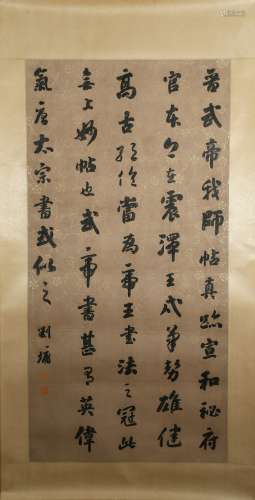 晉武帝我師帖真跡宣和秘府
官本今在震澤王氏筆勢雄健
高古強倫當為帝王書法之冠此
無上妙帖也武帝書甚有英偉
氣唐太宗書或似之劉墉